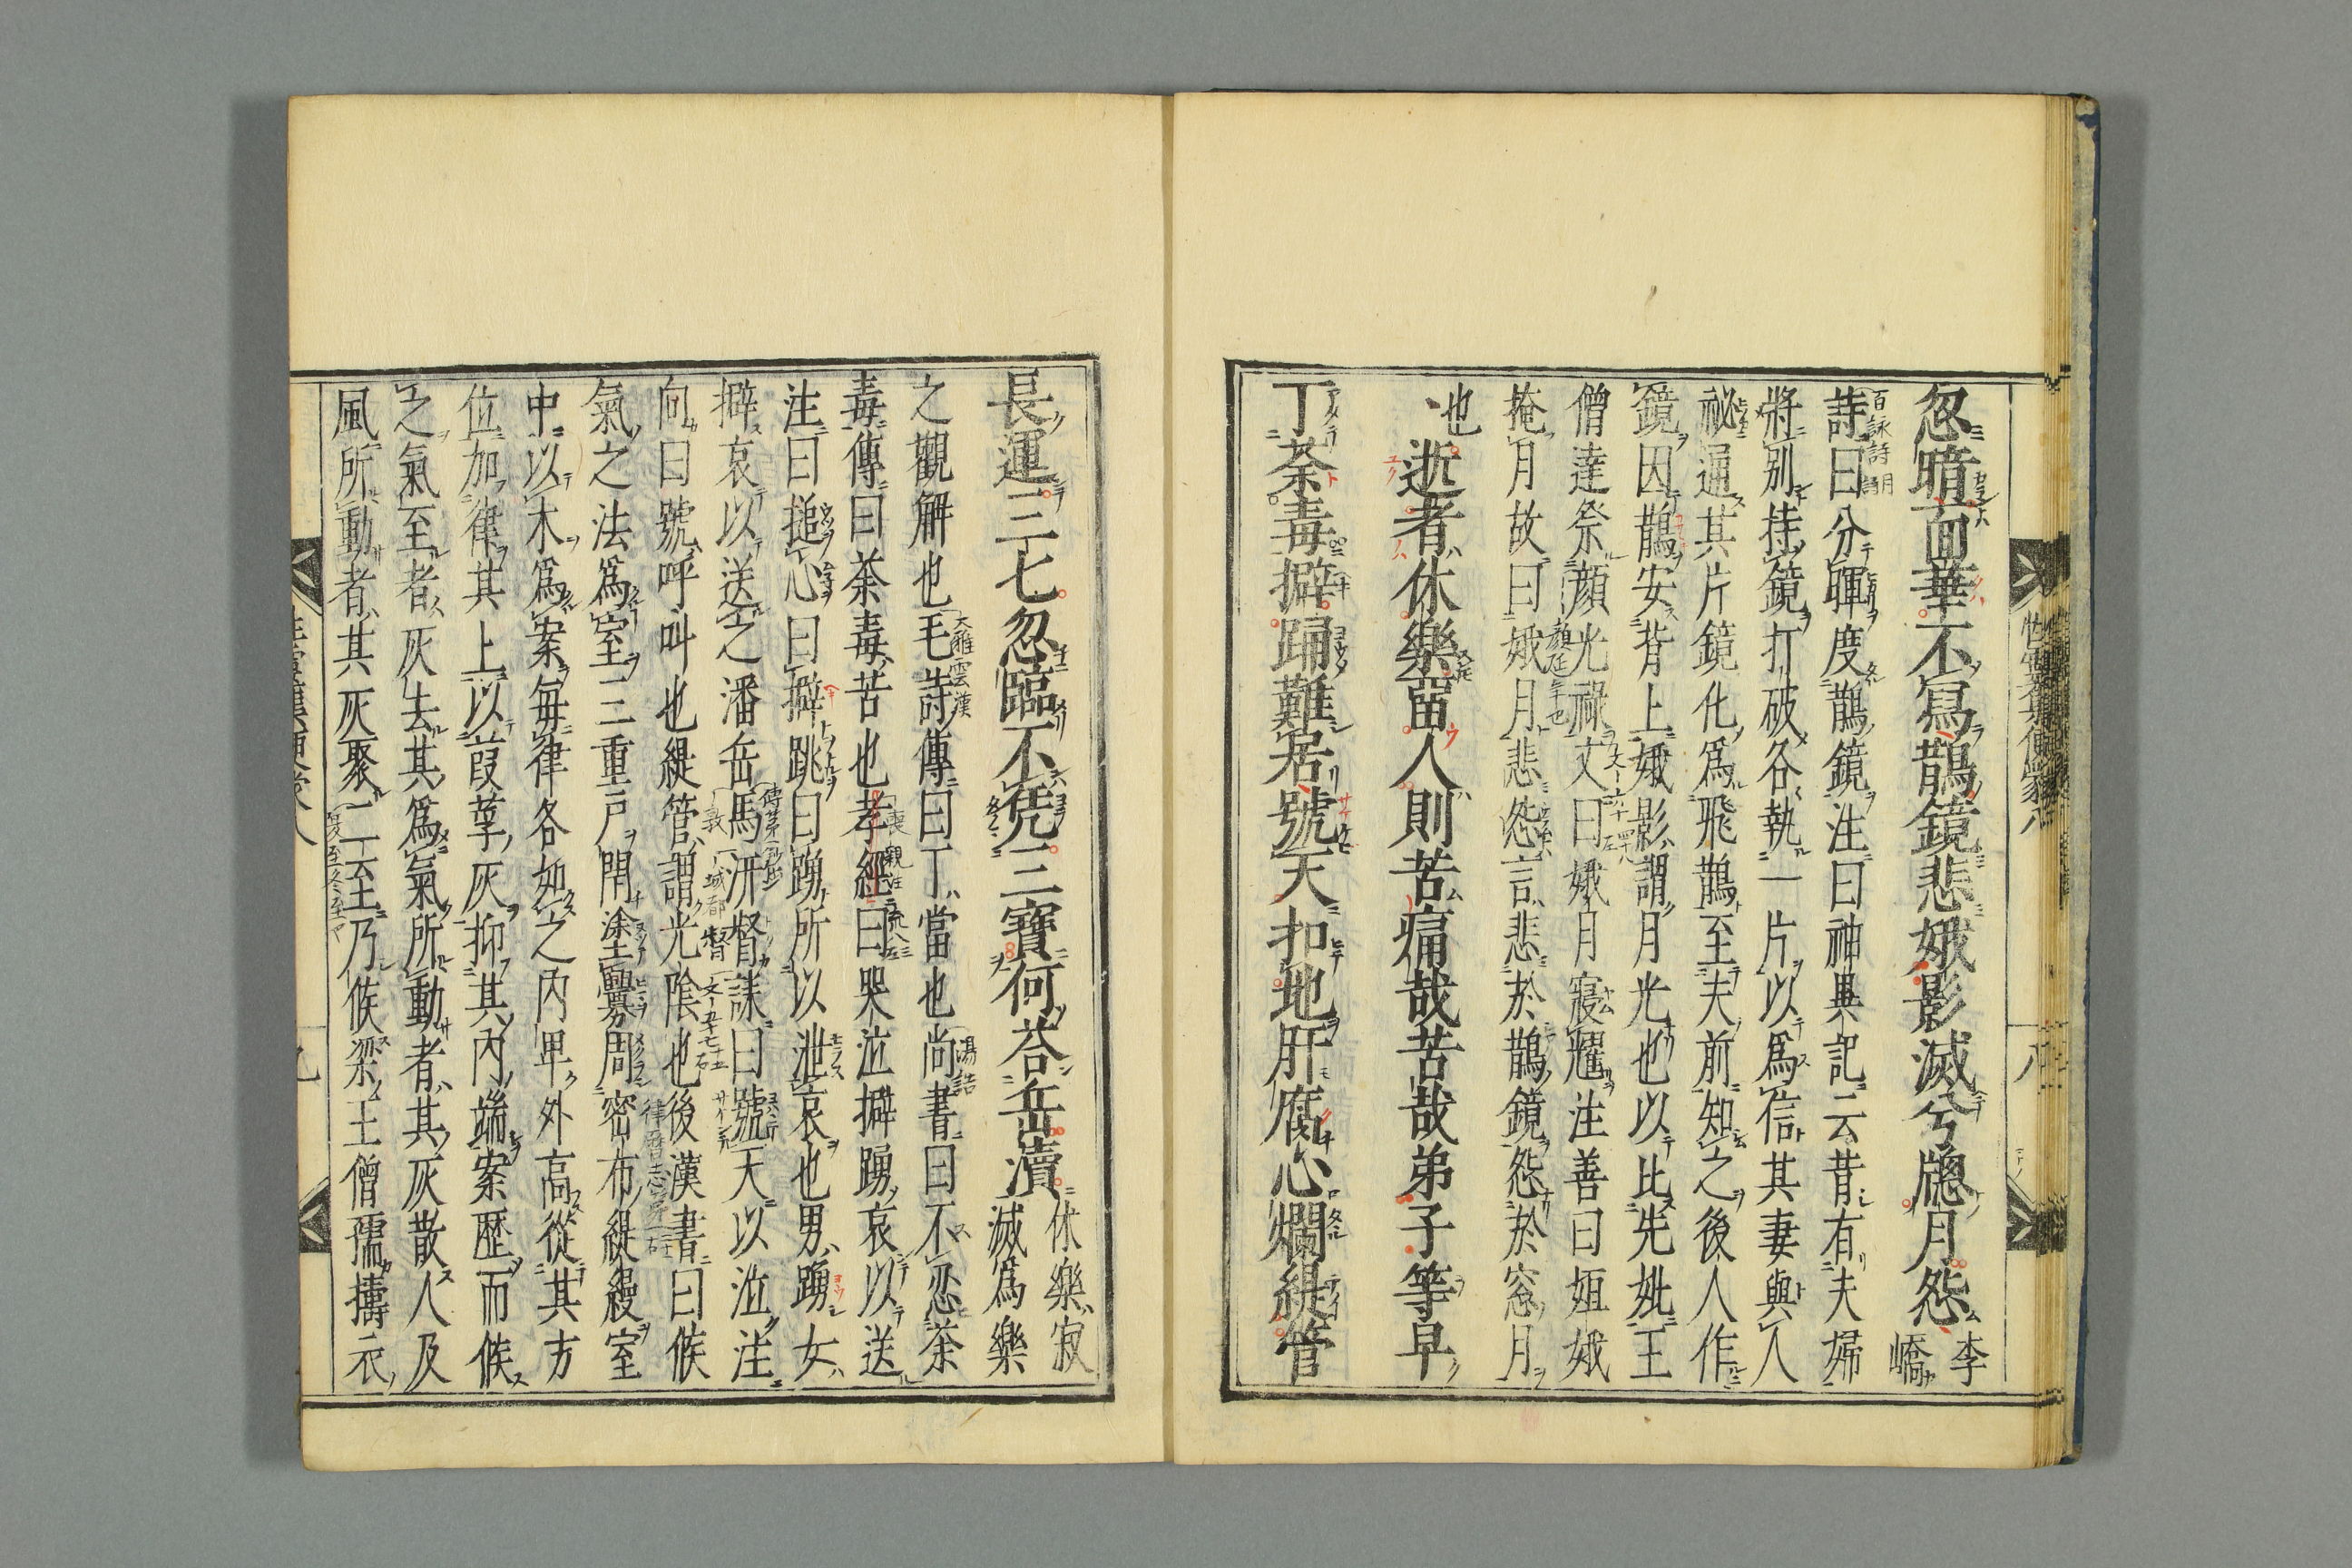 忽暗面華不寫鵲鏡悲娥影滅兮牕月怨李
嶠
百詠詩月詩
詩曰分暉度鵲鏡注曰神異記云昔有夫婦
將別持鏡打破各執一片以爲信其妻與人
祕通其片鏡化爲飛鵲至夫前知之後人作
鏡因鵲安背上娥影謂月光也以比先妣王
僧達祭顔光祿文曰娥月寢耀注善曰姮娥
掩月故曰娥月悲怨言悲於鵲鏡怨於窓月
也
逝者休樂畱人則苦痛哉苦哉弟子等早
丁荼毒擗踊難居號天扣地肝腐心爛緹管
長運三七忽臨不凭三寶何荅岳瀆
休樂寂
滅爲樂
之觀解也毛詩傳曰丁當也尚書曰不忍荼
大雅雲漢
湯誥
毒傳曰荼毒苦也孝經曰哭泣擗踊哀以送
注曰搥心曰擗跳曰踊所以泄哀也男踊女
擗哀以送之潘岳馬汧督誄曰號天以泣注
向曰號呼叫也緹管謂光陰也後漢書曰候
氣之法爲室三重戶閇塗釁周密布緹縵室
中以木爲案每律各如之內卑外高從其方
位加律其上以葭莩灰抑其內端案歷而候
之氣至者灰去其爲氣所動者其灰散人及
風所動者其灰聚二至乃候梁王僧孺擣衣